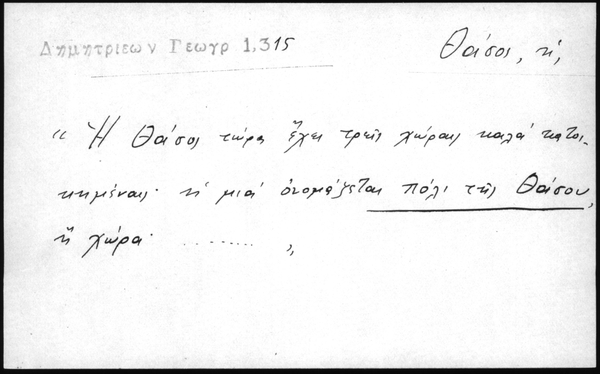 Δημητριεων Γεωγρ 1,315
Θάσος, ἡ,
“ Ἡ Θάσος τώρα ἔχει τρεῖς χώραις καλὰ κατοι-
κημέναις· ἡ μιὰ ὀνομάζεται πόλι τῆς Θάσου,
ἢ χώρα· ......... „